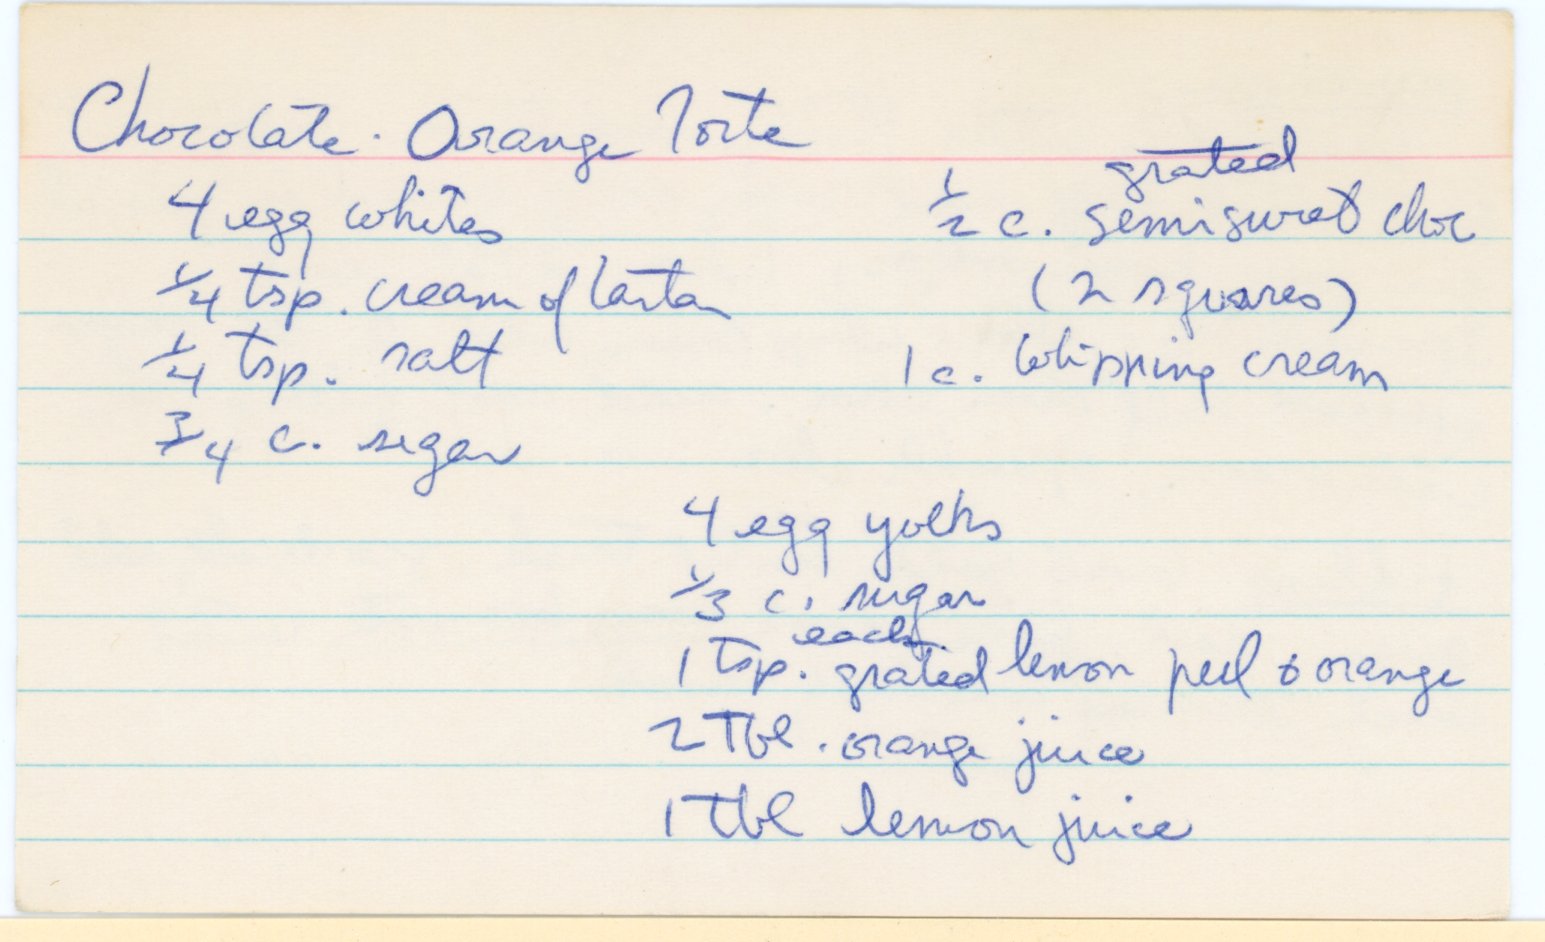 Chocolate - Orange Torte
4 egg whites
1/4 tsp. cream of tartar
1/4 tsp. salt
3/4 c. sugar
grated
1/2 c. semisweet choc
(2 squares)
1 c. whipping cream
4 egg yolks
1/3 c. sugar
each
1 tsp. grated lemon peel & orange
2 Tbl. orange juice
1 Tbl lemon juice